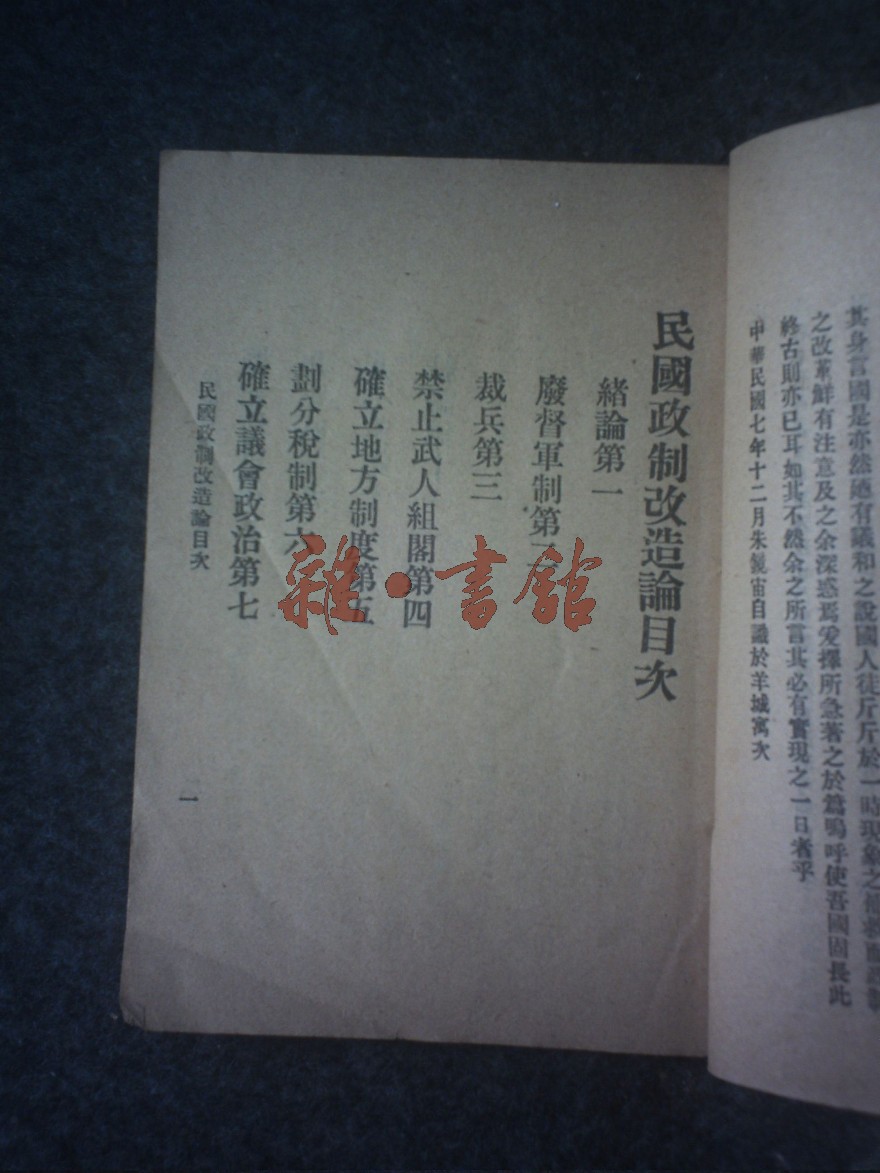 其身言國是亦然廼有議和之說國人徒斤斤於一時現象之
之改革鮮有注意及之余深惑焉爰擇所急著之於篇嗚呼使吾國固長此
終古則亦已耳如其不然余之所言其必有實現之一日者乎
中華民國七年十二月朱鏡宙自識於羊城寓次
民國政制改造論目次
緒論第一
廢督軍制第二
裁兵第三
禁止武人組閣第四
確立地方制度第五
劃分稅制第六
確立議會政治第七
民國政制改造論目次
一
雜·書館